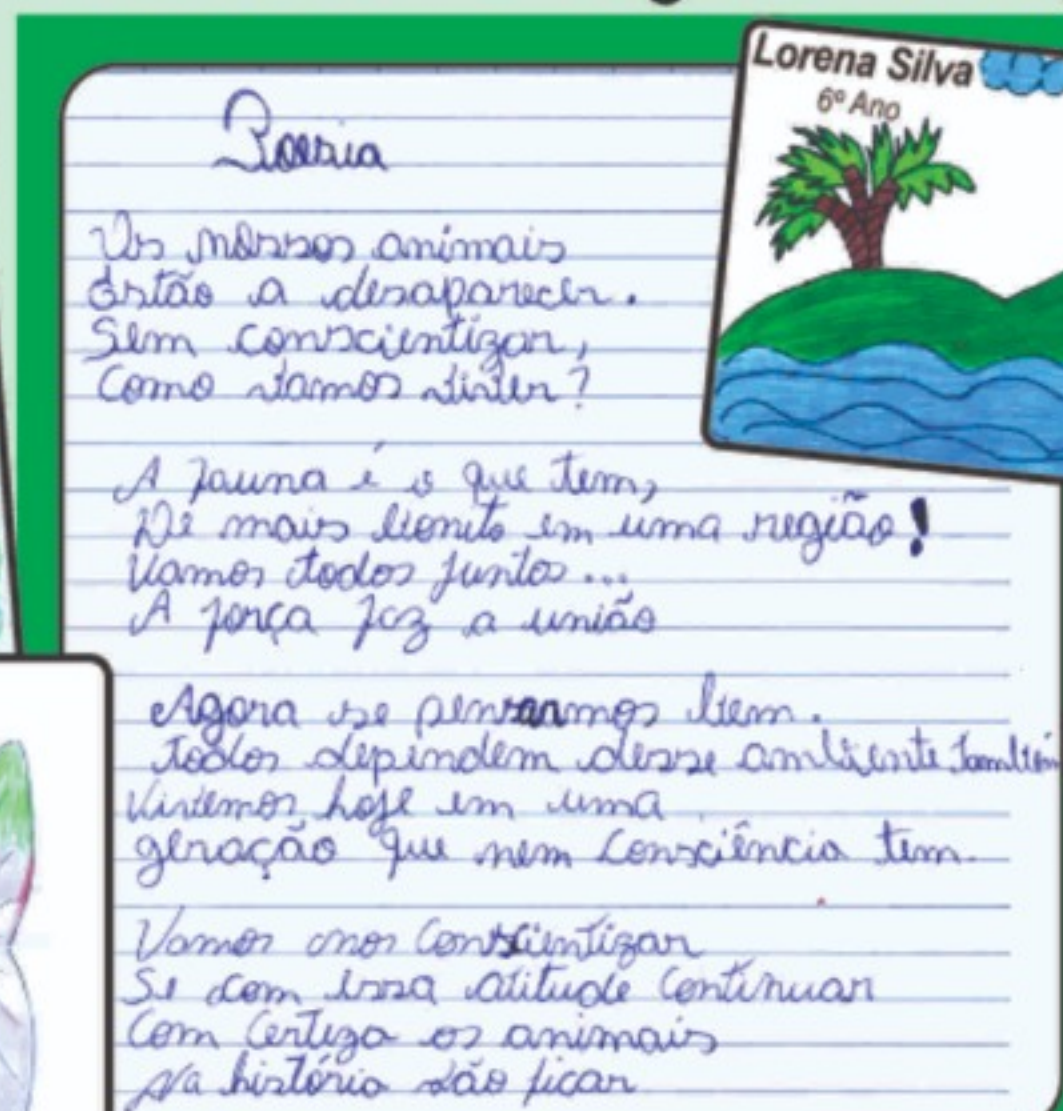 Lorena Silva
6º Ano
Poesia
Os nossos animais
Estão a desaparecer.
Sem conscientizar,
Como vamos viver?
A fauna é o que tem,
De mais bonito em uma região!
Vamos todos juntos...
A força faz a união
Agora se pensarmos bem.
Todos dependem desse ambiente também
Vivemos hoje em uma
geração que nem consciência tem.
Vamos nos conscientizar
Se com essa atitude continuar
Com certeza os animais
Na história vão ficar